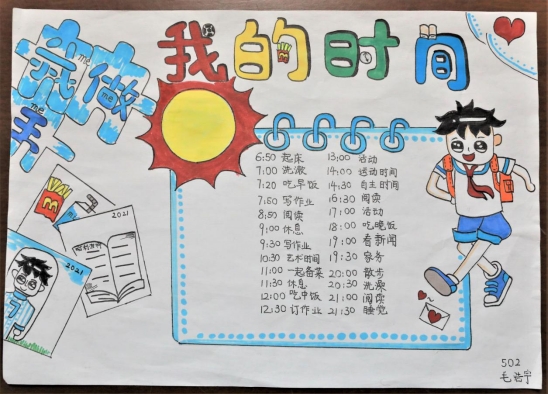 我的时间
我做
me
me
手
me
6:50 起床
7:00 洗漱
7:20 吃早饭
7:50 写作业
8:50 阅读
9:00 休息
9:30 写作业
10:30 艺术时间
11:00 一起备菜
11:30 休息
12:00 吃中饭
12:30 订作业
13:00 活动
14:00 运动时间
14:30 自主时间
16:30 阅读
17:00 活动
18:00 吃晚饭
19:00 看新闻
19:30 家务
20:00 散步
20:30 洗澡
21:00 阅读
21:30 睡觉
2021
2021
502
毛浩宇